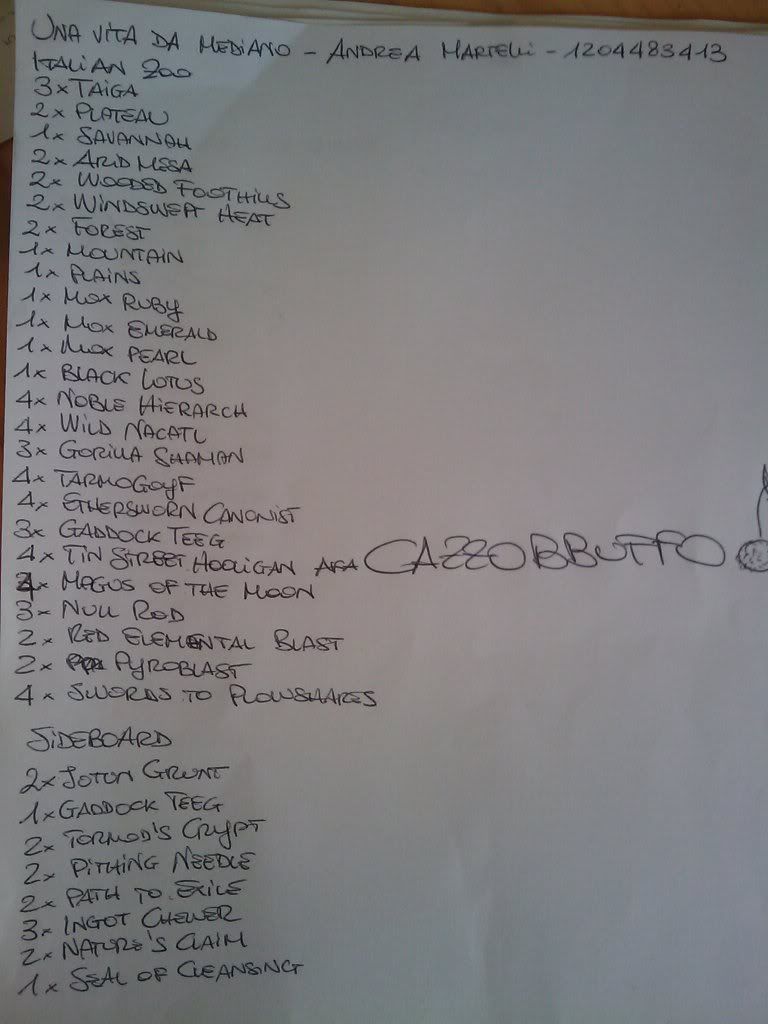 UNA VITA DA MEDIANO - ANDREA MARTELLI - 1204483413
ITALIAN ZOO
3x TAIGA
2x PLATEAU
1x SAVANNAH
2x ARID MESA
2x WOODED FOOTHILLS
2x WINDSWEPT HEAT
2x FOREST
1x MOUNTAIN
1x PLAINS
1x MOX RUBY
1x MOX EMERALD
1x MOX PEARL
1x BLACK LOTUS
4x NOBLE HIERARCH
4x WILD NACATL
3x GORILLA SHAMAN
4x TARMOGOYF
4x ETHERSWORN CANONIST
3x GADDOCK TEEG
4x TIN STREET HOOLIGAN AKA CAZZOBBUFFO
x MAGUS OF THE MOON
3x NULL ROD
2x RED ELEMENTAL BLAST
2x PYROBLAST
4x SWORDS TO PLOWSHARES
SIDEBOARD
2x JOTUN GRUNT
1x GADDOCK TEEG
2x TORMOD'S CRYPT
2x PITHING NEEDLE
2x PATH TO EXILE
3x INGOT CHEWER
2x NATURE'S CLAIM
1x SEAL OF CLEANSING